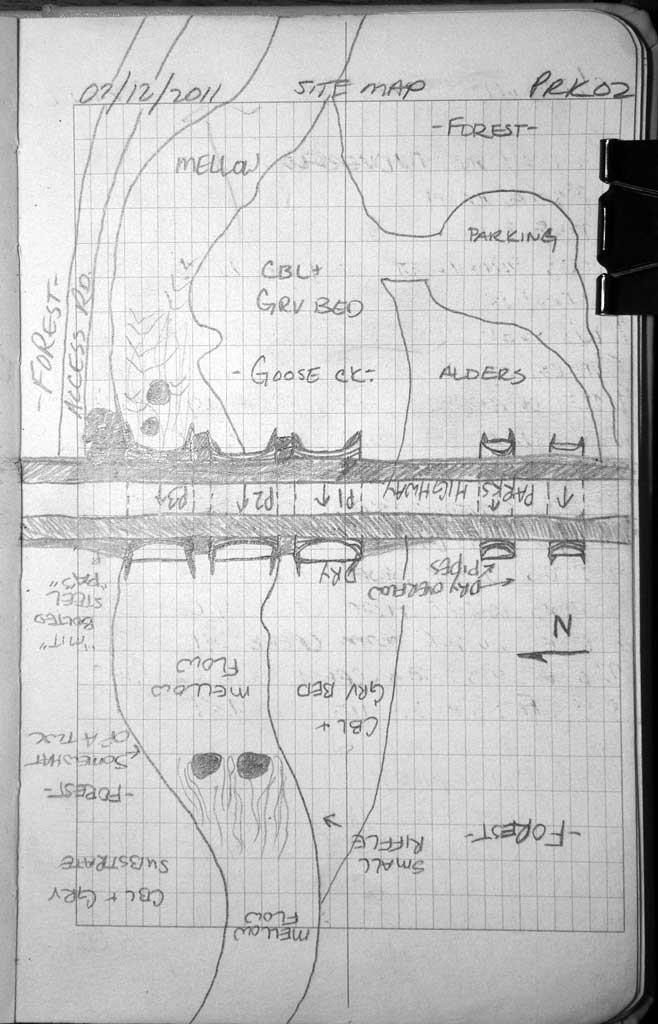 02/12/2011 SITE MAP PRK02
-FOREST-
MELLOW
PARKING
CBL+
GRV BED
-FOREST-
ACCESS RD.
-GOOSE CK-
ALDERS
P3↑ P2↑ P1↑ PARKS HIGHWAY
DRY
DRY OVERFLOW
PIPES
STEEL
BOLTED
"MIT"
N
MELLOW
FLOW
CBL +
GRV BED
SOMEWHAT
OF A FIX
-FOREST-
SMALL
RIFFLE
-FOREST-
CBL + GRV
SUBSTRATE
MELLOW
FLOW